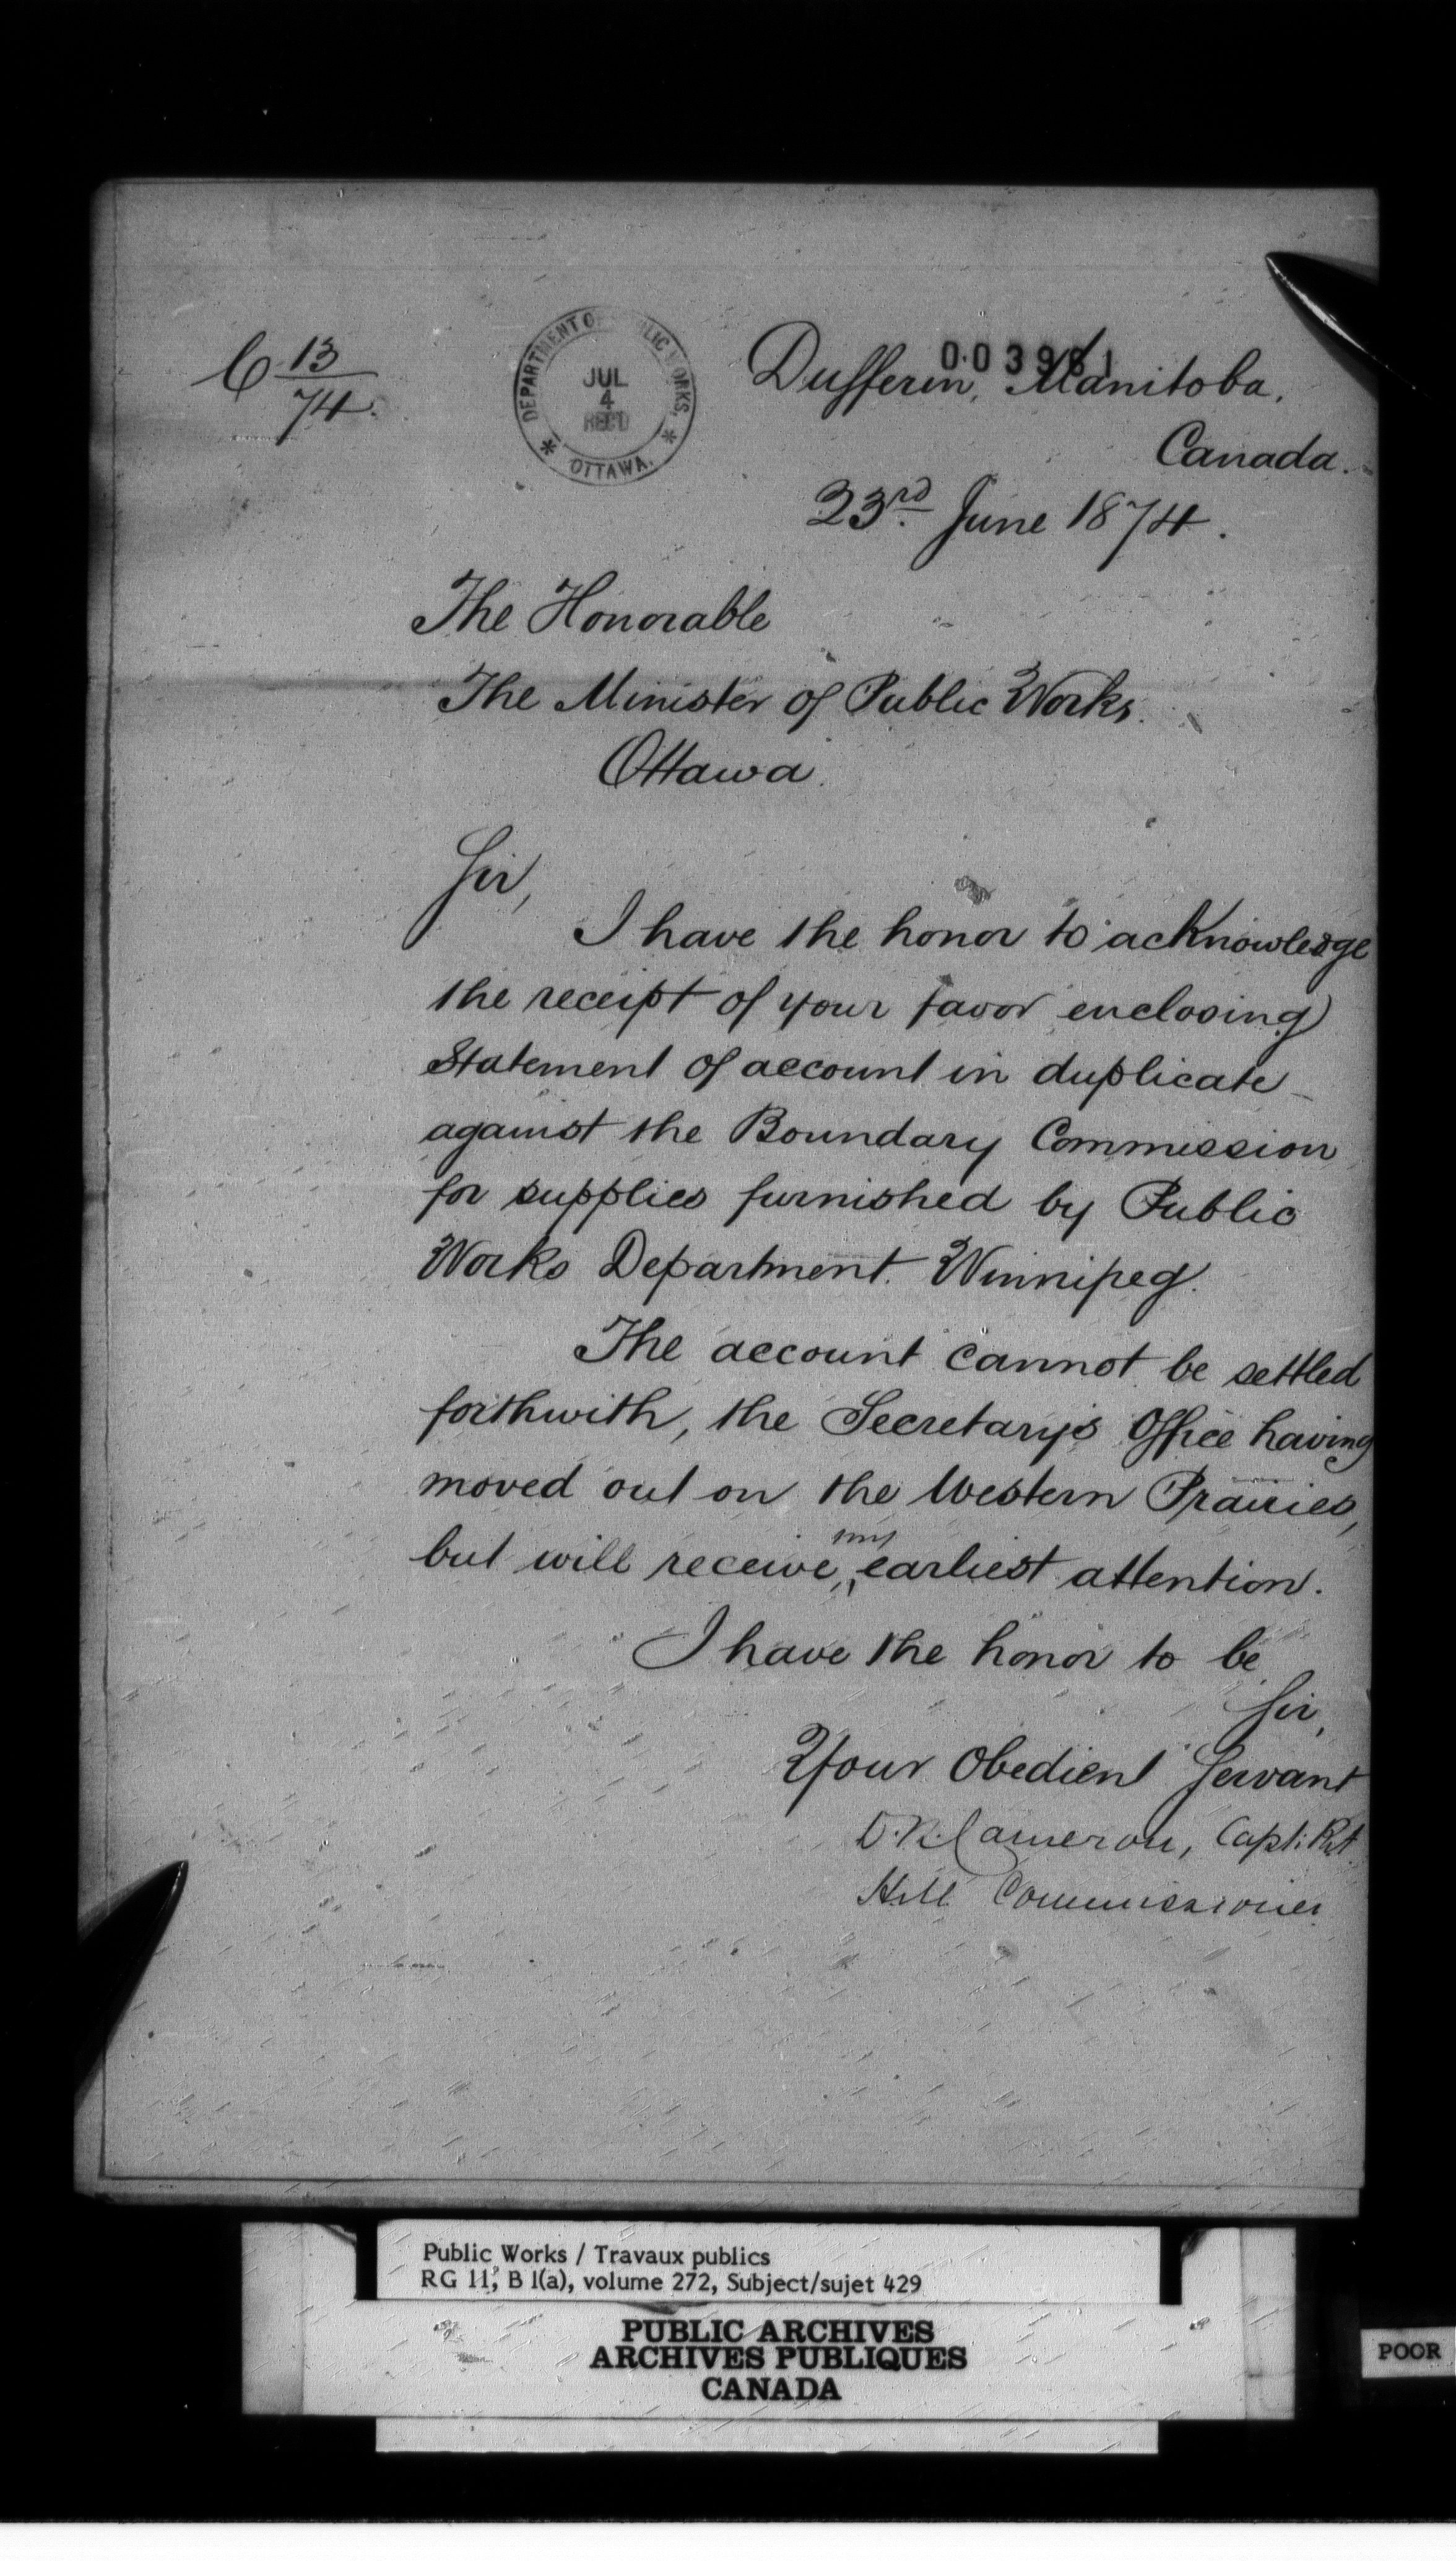 C 13/74
DEPARTMENT OF PUBLIC WORKS,
JUL
4
REC'D
* OTTAWA. *
003981
Dufferin, Manitoba,
Canada.
23rd June 1874.
The Honorable
The Minister of Public Works.
Ottawa.
Sir,
I have the honor to acknowledge
the receipt of your favor enclosing
Statement of account in duplicate
against the Boundary Commission
for supplies furnished by Public
Works Department. Winnipeg.
The account cannot be settled
forthwith, the Secretary's Office having
moved out on the Western Prairies,
but will receive my earliest attention.
I have the honor to be
Sir,
Your Obedient Servant
D.R. Cameron, Capt: RA
H.M. Commissioner
Public Works / Travaux publics
RG 11, B 1(a), volume 272, Subject/sujet 429
PUBLIC ARCHIVES
ARCHIVES PUBLIQUES
CANADA
POOR